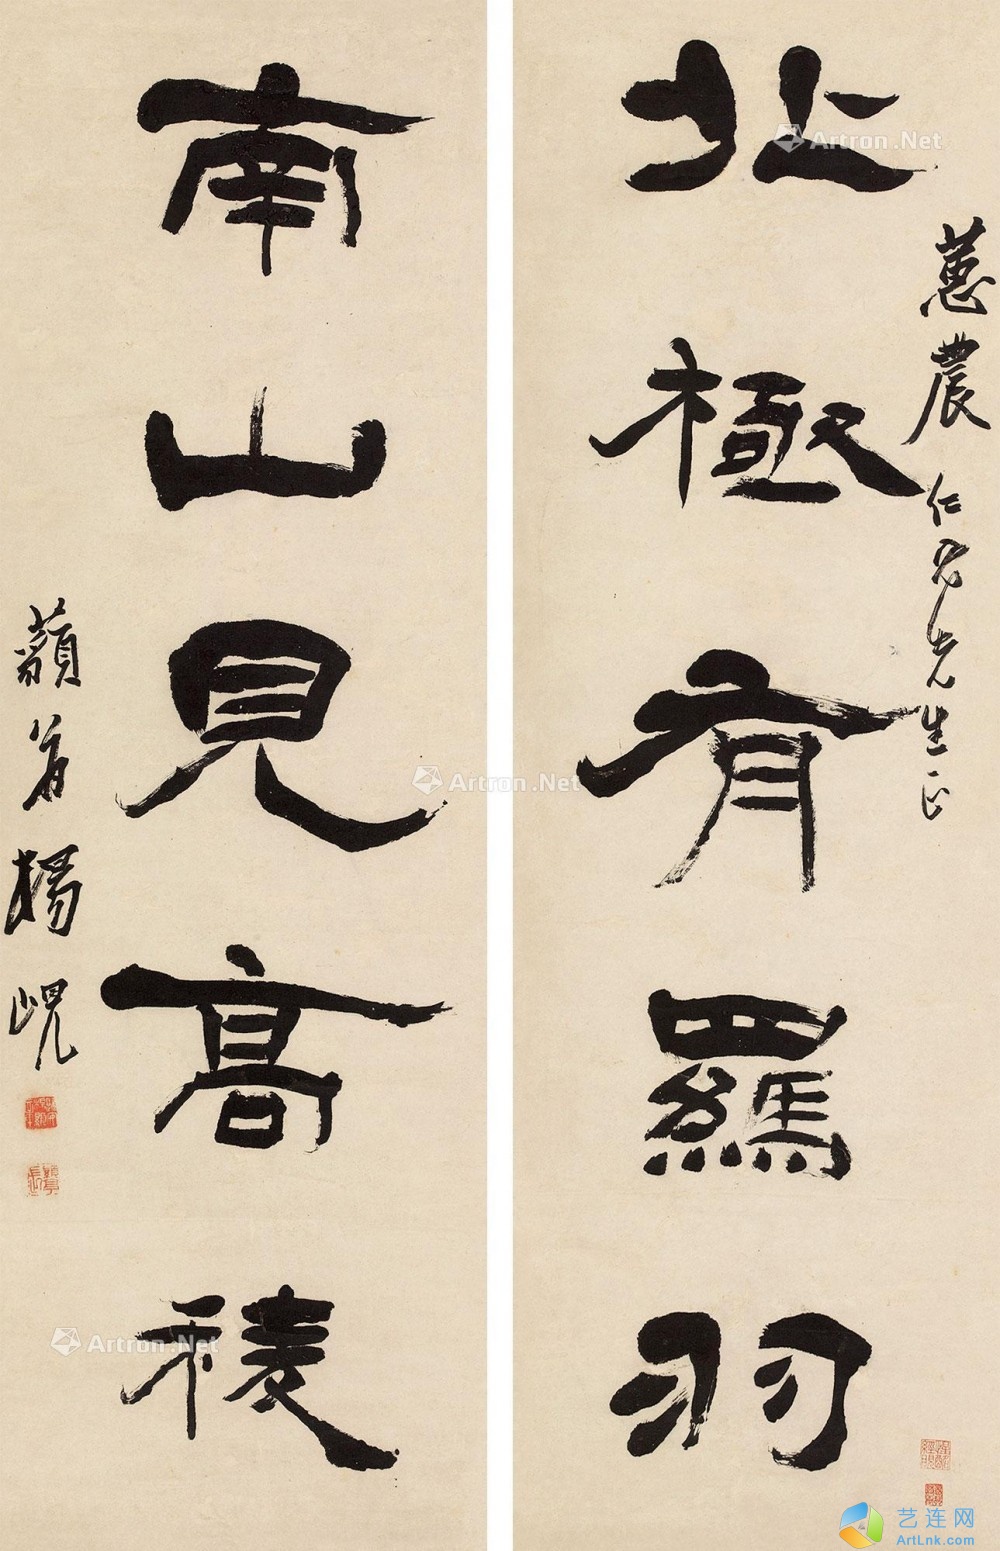 蕙農仁先生正
北極有羈羽
南山見高稜
藐翁楊峴
Artron.Net
Artron.Net
Artron.Net
艺连网
ArtLnk.com